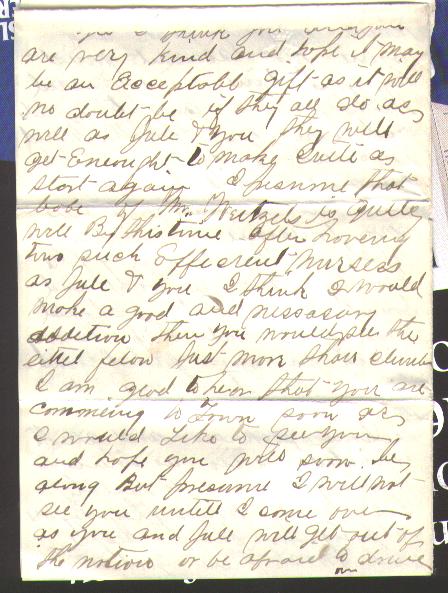 I think you
are very kind and hope it may
be an acceptabl gift as it will
no doubt be if they all do as
well as Jule & you they will
get Enought to make quite as
start again I presume that
babe of Mr Weitzels is quite
well By this time after haveing
two such Effecient Nurses
as Jule & you I think I would
make a good and nessasary
addition then you would see the
fellow just more than climb
I am glad to hear that you are
commeing to Town soon as
I would Like to see you
and hope you will soon be
along But presume I will not
see you untill I come over
as you and Jule will get out of
the notion or be afraid to drive